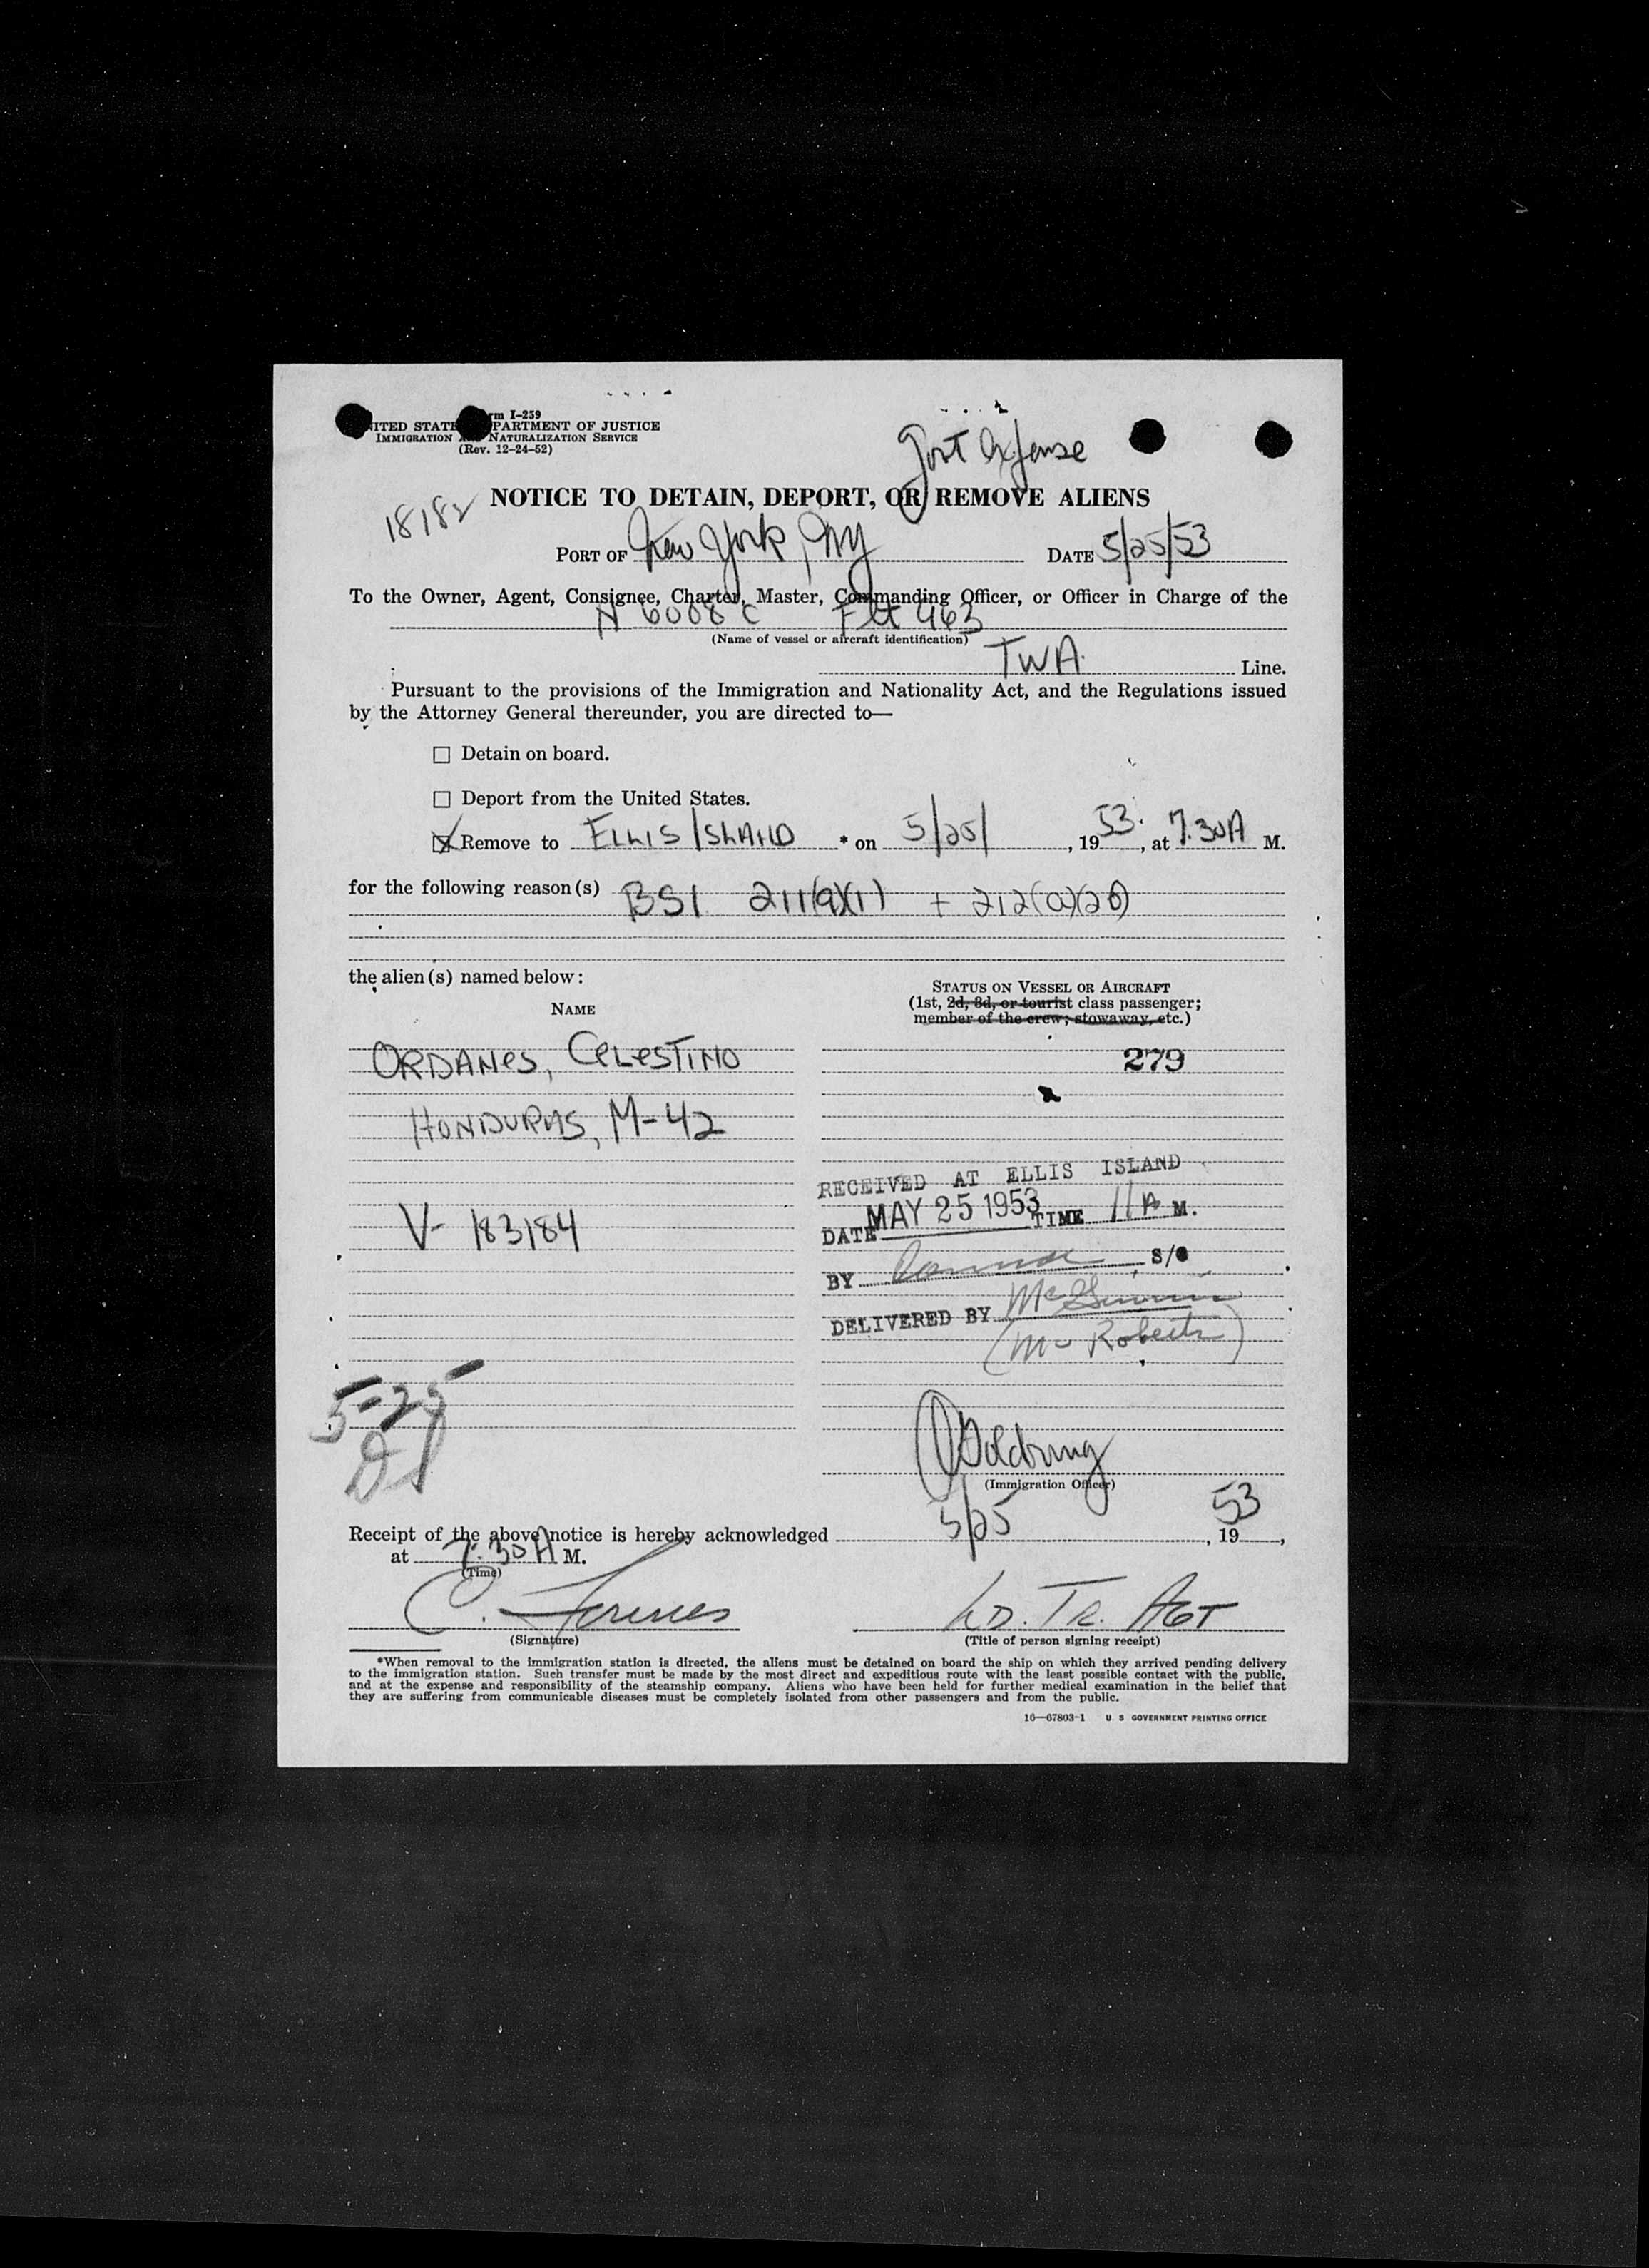 Form I-259
UNITED STATES DEPARTMENT OF JUSTICE
IMMIGRATION AND NATURALIZATION SERVICE
(Rev. 12-24-52)
Govt Expense
18182
NOTICE TO DETAIN, DEPORT, OR REMOVE ALIENS
PORT OF New York, NY DATE 5/25/53
To the Owner, Agent, Consignee, Charter, Master, Commanding Officer, or Officer in Charge of the
N 6008 C Flt 963
(Name of vessel or aircraft identification)
TWA Line.
Pursuant to the provisions of the Immigration and Nationality Act, and the Regulations issued
by the Attorney General thereunder, you are directed to—
☐ Detain on board.
☐ Deport from the United States.
☒ Remove to ELLIS ISLAND * on 5/25/, 1953, at 7.30A M.
for the following reason(s) BSI 211(a)(1) + 212(a)(26)
the alien(s) named below:
NAME
STATUS ON VESSEL OR AIRCRAFT
(1st, 2d, 3d, or tourist class passenger;
member of the crew; stowaway, etc.)
ORDANES, CELESTINO
279
HONDURAS, M-42
RECEIVED AT ELLIS ISLAND
V- 183184
DATE MAY 25 1953 TIME 11 A M.
BY S/O
DELIVERED BY
(Mc Roberts)
5-25
Goldring
(Immigration Officer)
Receipt of the above notice is hereby acknowledged 5/25, 1953,
at 7:30A M.
(Time)
C. LD. TR. AGT
(Signature) (Title of person signing receipt)
*When removal to the immigration station is directed, the aliens must be detained on board the ship on which they arrived pending delivery
to the immigration station. Such transfer must be made by the most direct and expeditious route with the least possible contact with the public,
and at the expense and responsibility of the steamship company. Aliens who have been held for further medical examination in the belief that
they are suffering from communicable diseases must be completely isolated from other passengers and from the public.
16—67803-1 U. S GOVERNMENT PRINTING OFFICE